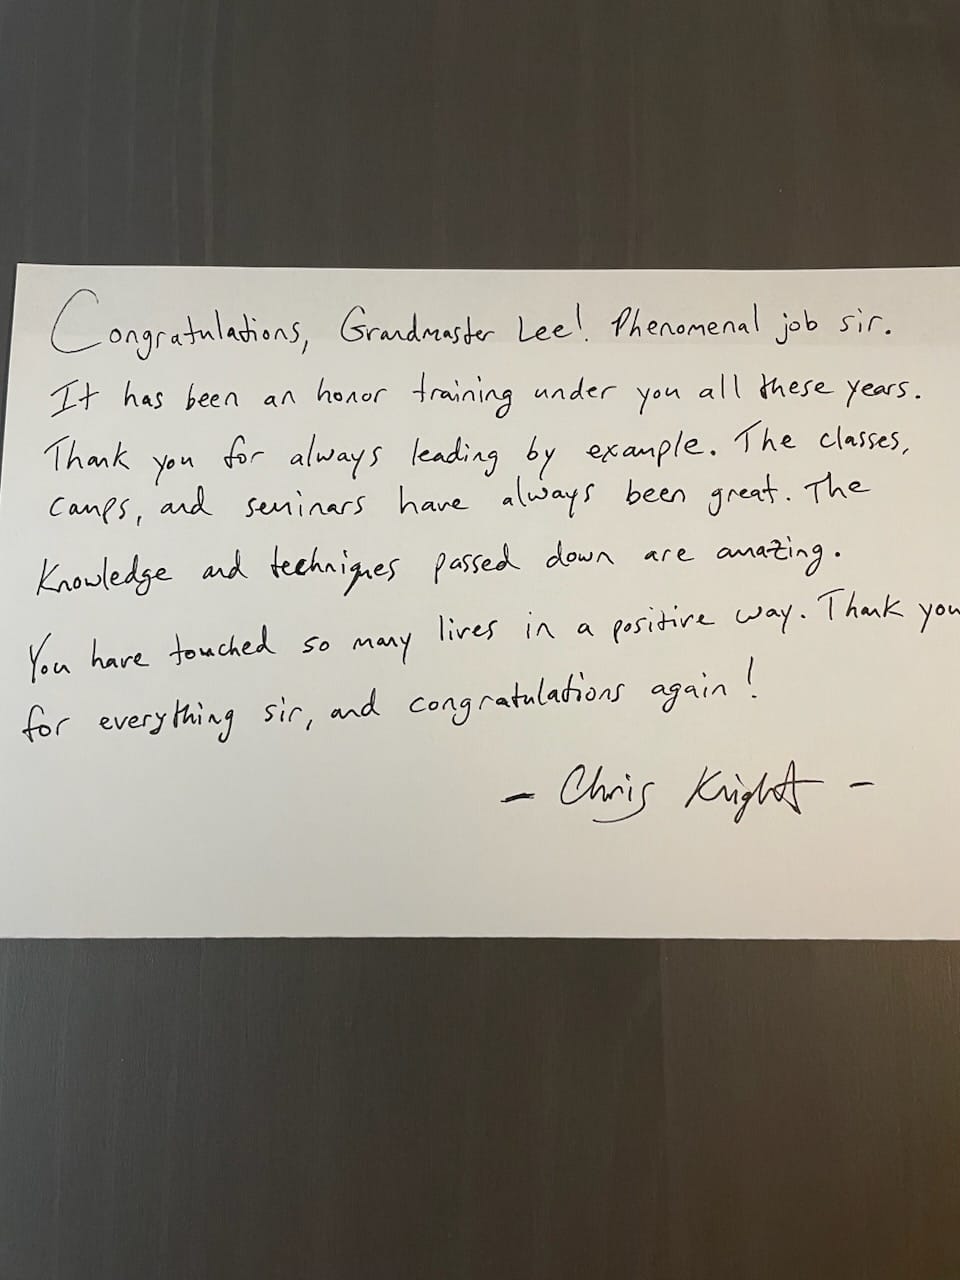 Congratulations, Grandmaster Lee! Phenomenal job sir.
It has been an honor training under you all these years.
Thank you for always leading by example. The classes,
camps, and seminars have always been great. The
Knowledge and techniques passed down are amazing.
You have touched so many lives in a positive way. Thank you
for everything sir, and congratulations again!
- Chris Knight -